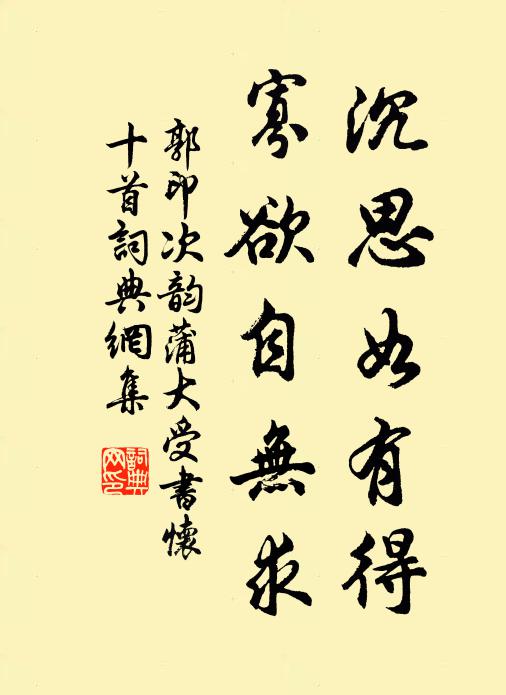 沉思如有得
寡欲自無求
郭印次韵蒲大受書懷
十首詞典網集
詞典網印